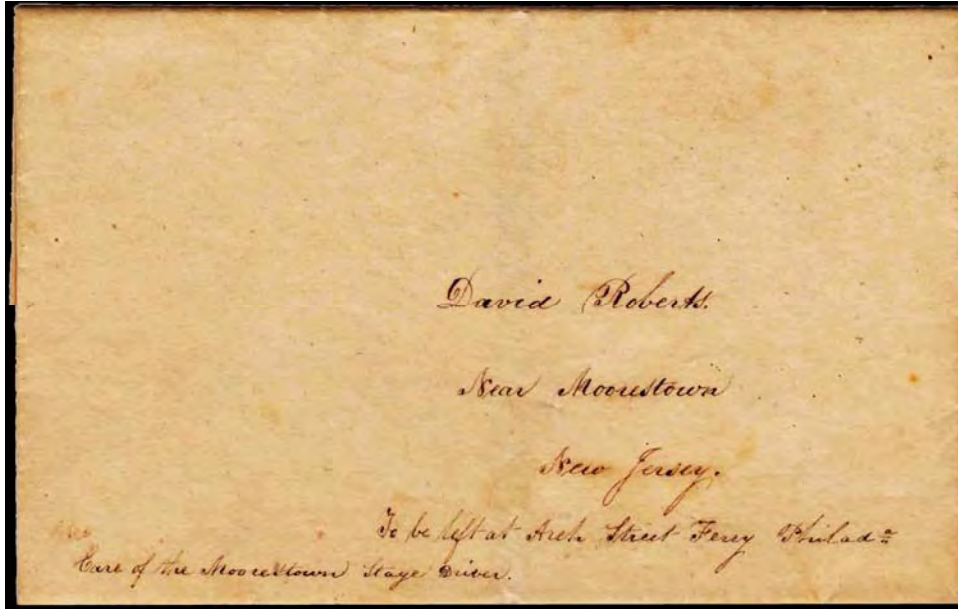 David Roberts.
Near Moorestown
New Jersey.
To be left at Arch Street Ferry Philad=a
Care of the Moorestown Stage Driver.